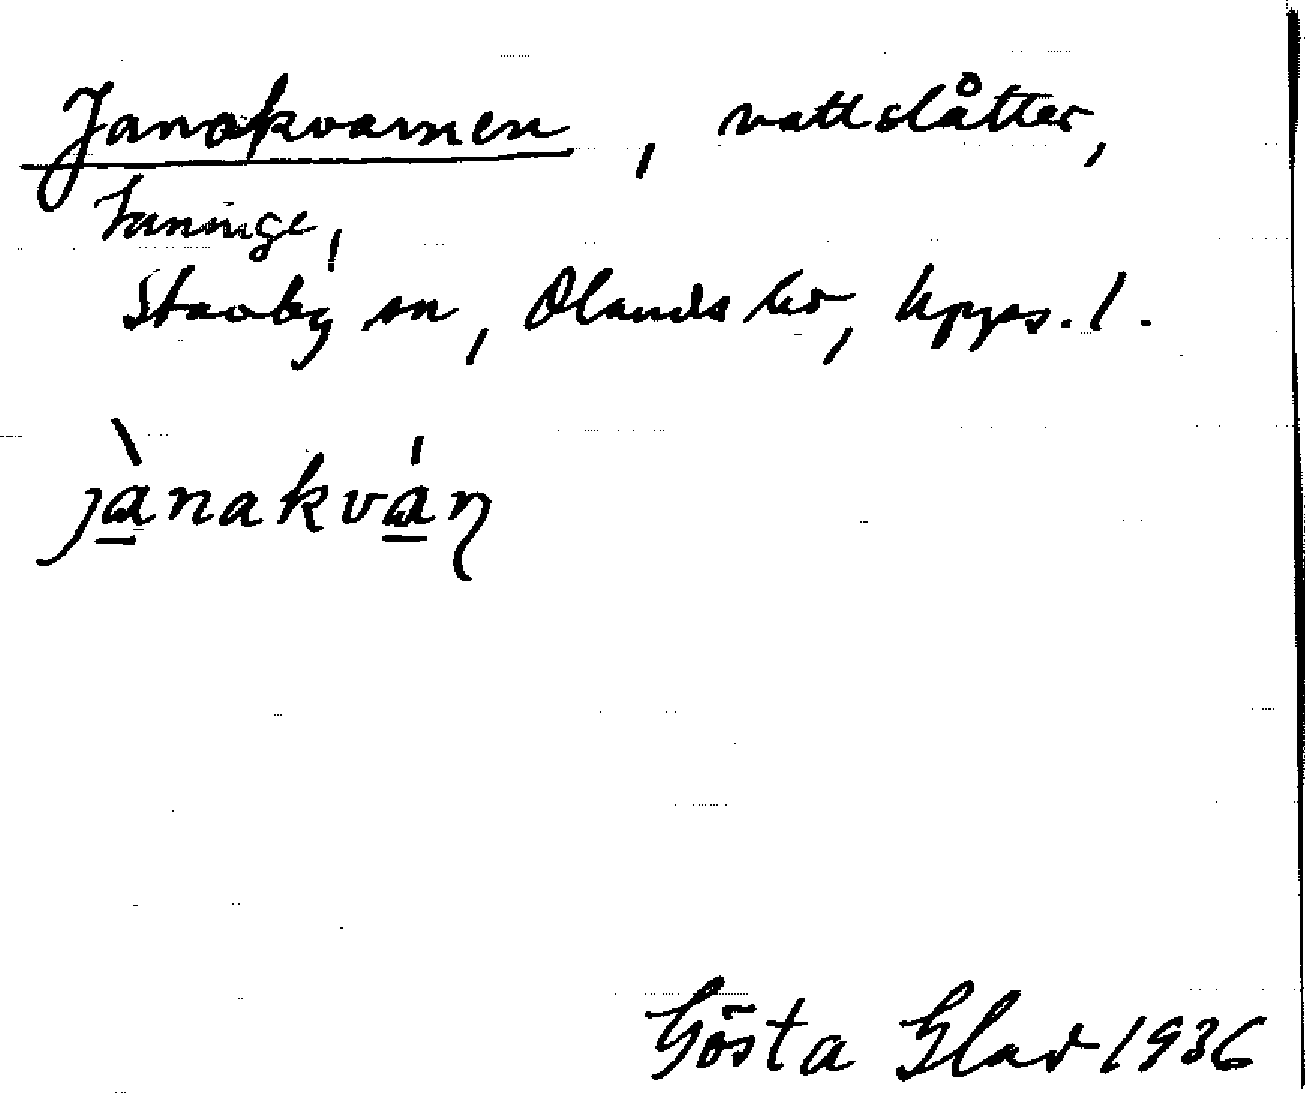 Janakvarnen, vattslåtter,
Haninge,
Stavby sn, Olands hd, Upps. l.
jànakván
Gösta Glad 1936